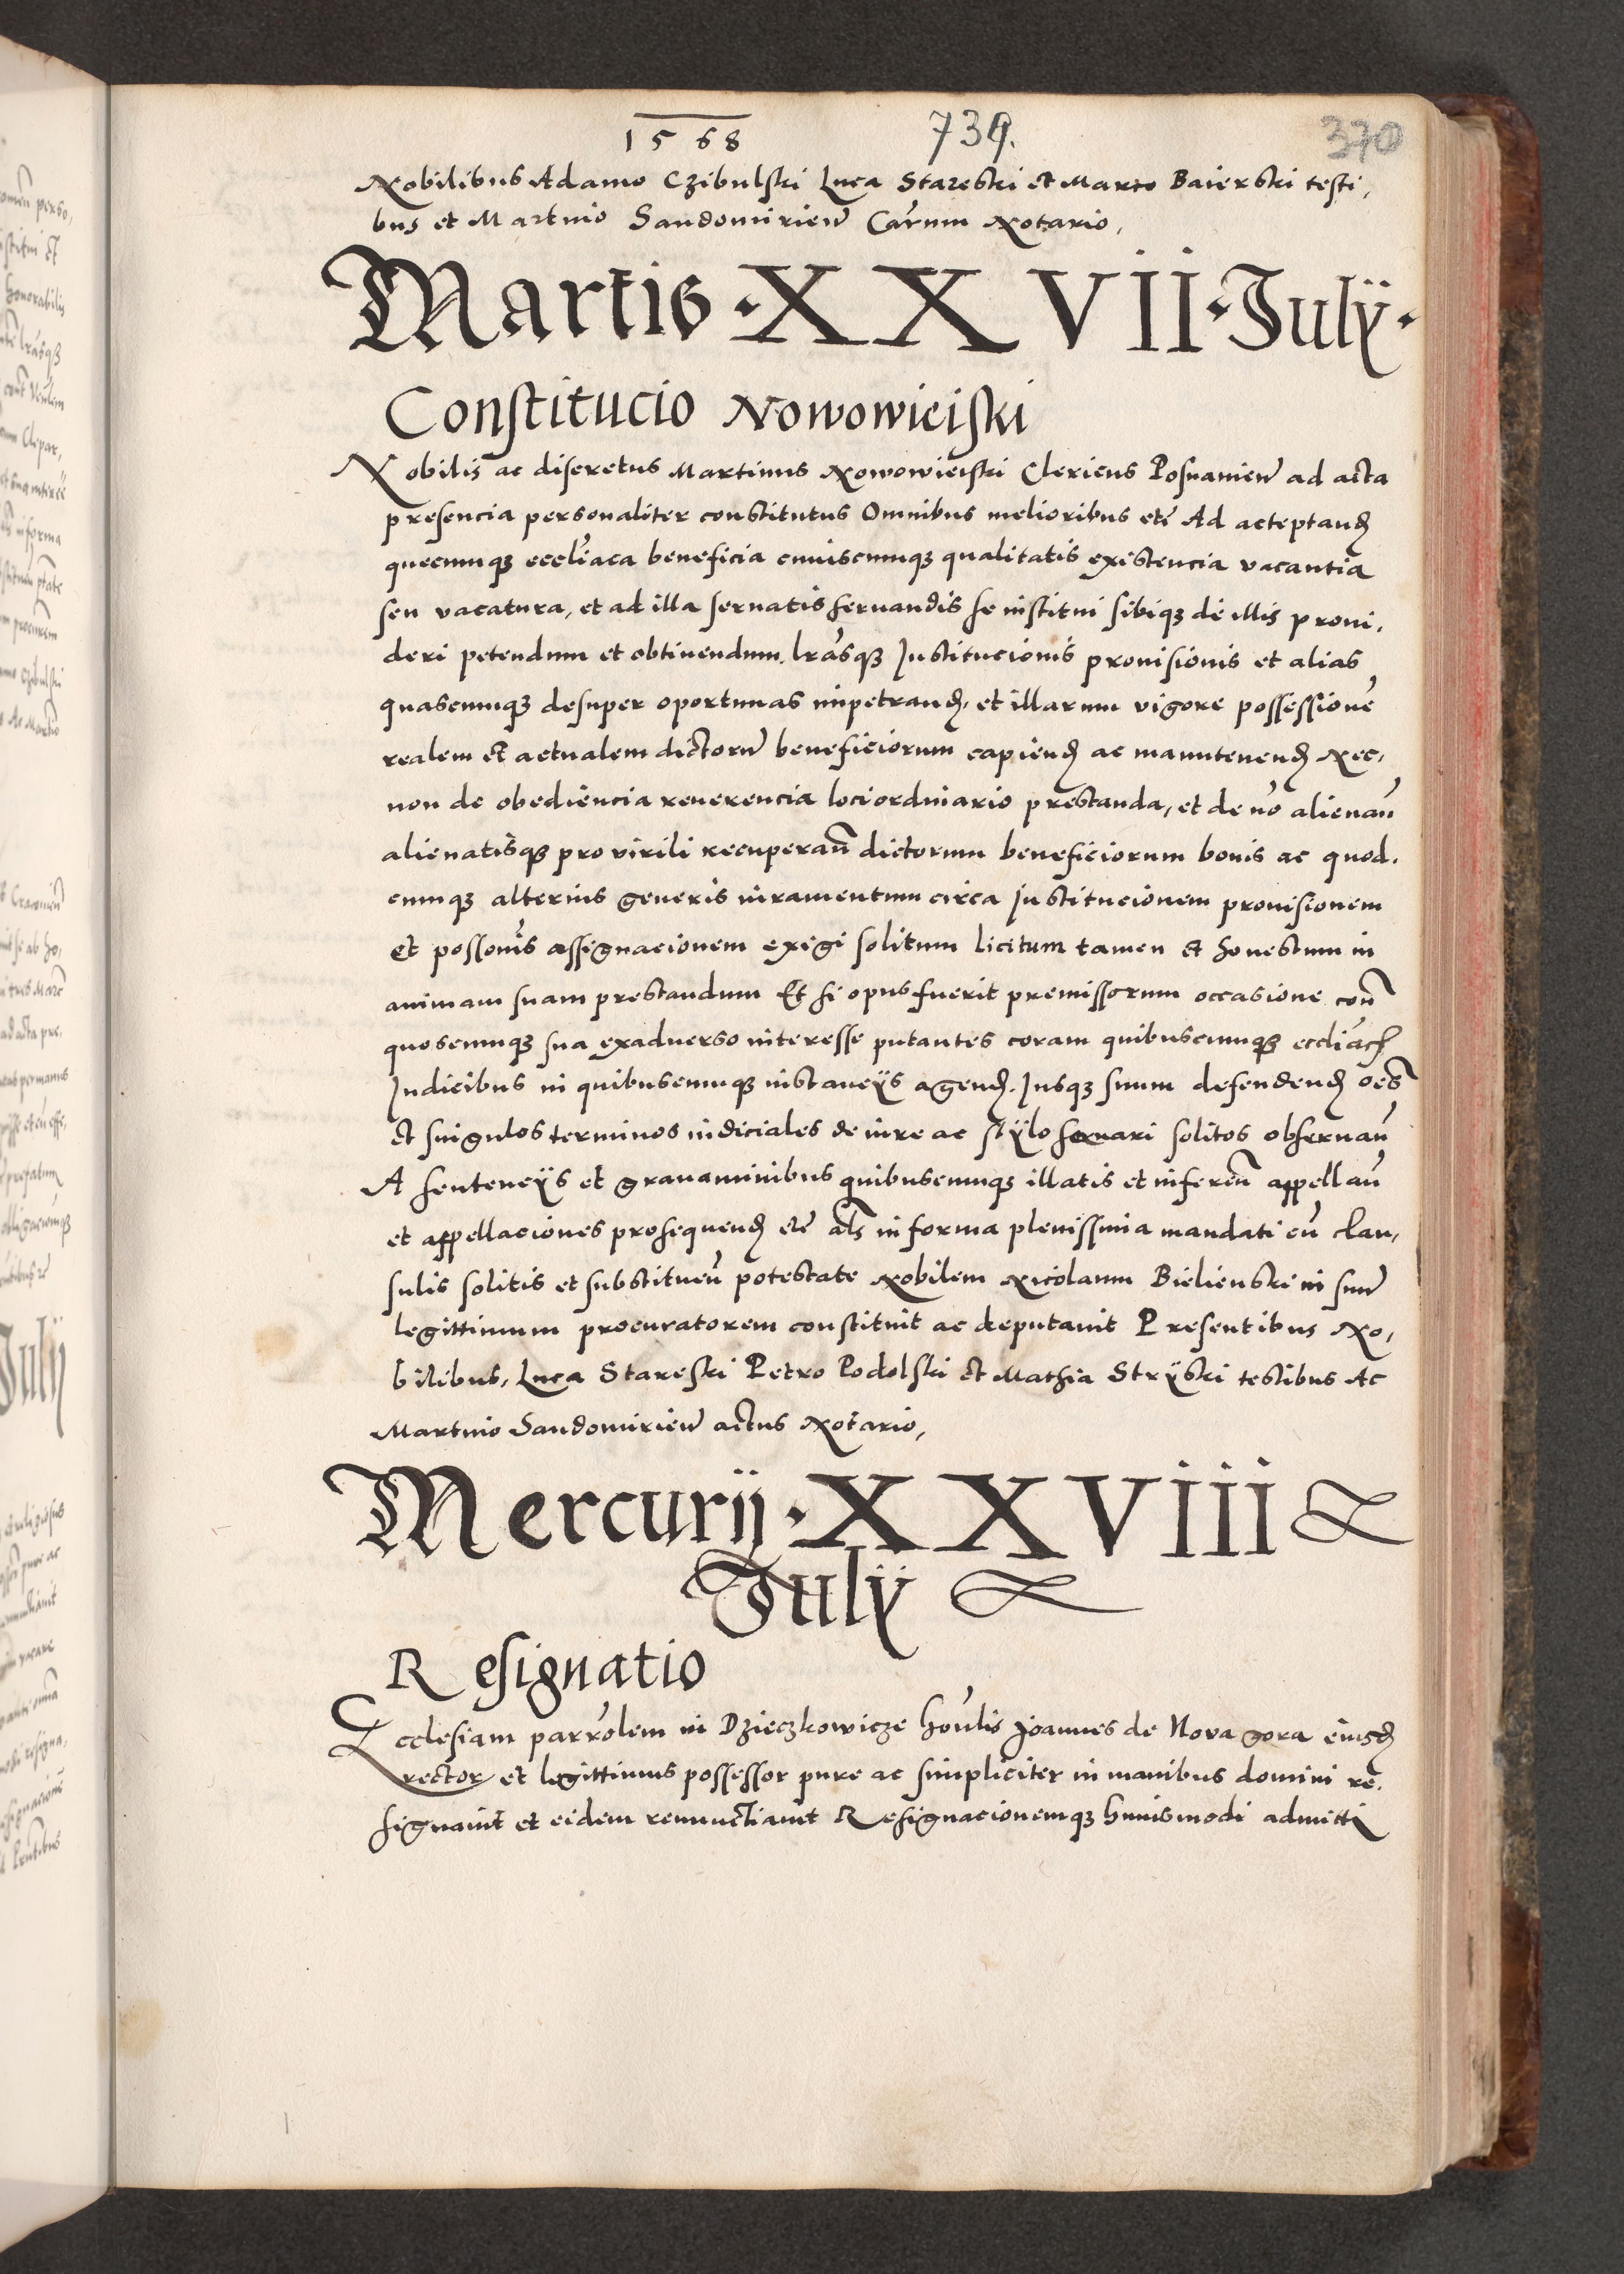 1568 739. 370
Nobilibus Adamo Czibulski Luca Stareski et Marco Baierski testi,
bus et Martino Sandomirien̄ Carum Notario,
Martis · XXVII · July ·
Constitucio Nowowieiski
Nobilis ac discretus Martinus Nowowieiski Clericus Posnanien̄ ad acta
presencia personaliter constitutus Omnibus melioribus etc̄ Ad acceptand
quecumqꝫ eccl̄iaca beneficia cuiuscumqꝫ qualitatis existencia vacantia
seu vacatura, et ad illa servatis servandis se institui sibiqꝫ de illis provi,
deri petendum et obtinendum, lr̄asqꝫ Institucionis provisionis et alias
quascumqꝫ desuper oportunas impetrand, et illarum vigore possessionē
realem et actualem dictorū beneficiorum capiend ac manutenend Nec,
non de obediencia reverencia loci ordinario prestanda, et de nō alienan̄
alienatisqꝫ pro virili recuperan̄ dictorum beneficiorum bonis ac quod,
cumqꝫ alterius generis iuramentum circa Institucionem provisionem
et possonis assignacionem exigi solitum licitum tamen et honestum in
animam suam prestandum Et si opus fuerit premissorum occasione con̄
quoscumqꝫ sua ex adverso interesse putantes coram quibuscumqꝫ eccl̄iac
Iudicibus in quibuscumqꝫ instancÿs agend, Iusqꝫ suum defendend oēs
et singulos terminos iudiciales de iure ac stÿlo servari solitos observan̄
A sentencÿs et gravaminibus quibuscumqꝫ illatis et inferen̄ appellan̄
et appellaciones prosequend etc̄ al̄s in forma plenissima mandati cū clau,
sulis solitis et substituen̄ potestate Nobilem Nicolaum Bielienski in suū
legittimum procuratorem constituit ac deputavit Presentibus No,
bilibus, Luca Stareski Petro Podolski et Mathia Strÿski testibus Ac
Martino Sandomirien̄ actus Notario,
Mercurij · XXVIII
July
Resignatio
Ecclesiam parrolem in Dzieczkowicze hon̄lis Joannes de Nova gora eiusd
rector et legittimus possessor pure ac simpliciter in manibus domini re,
signavit et eidem renunctiavit Resignacionemqꝫ huiusmodi admitti